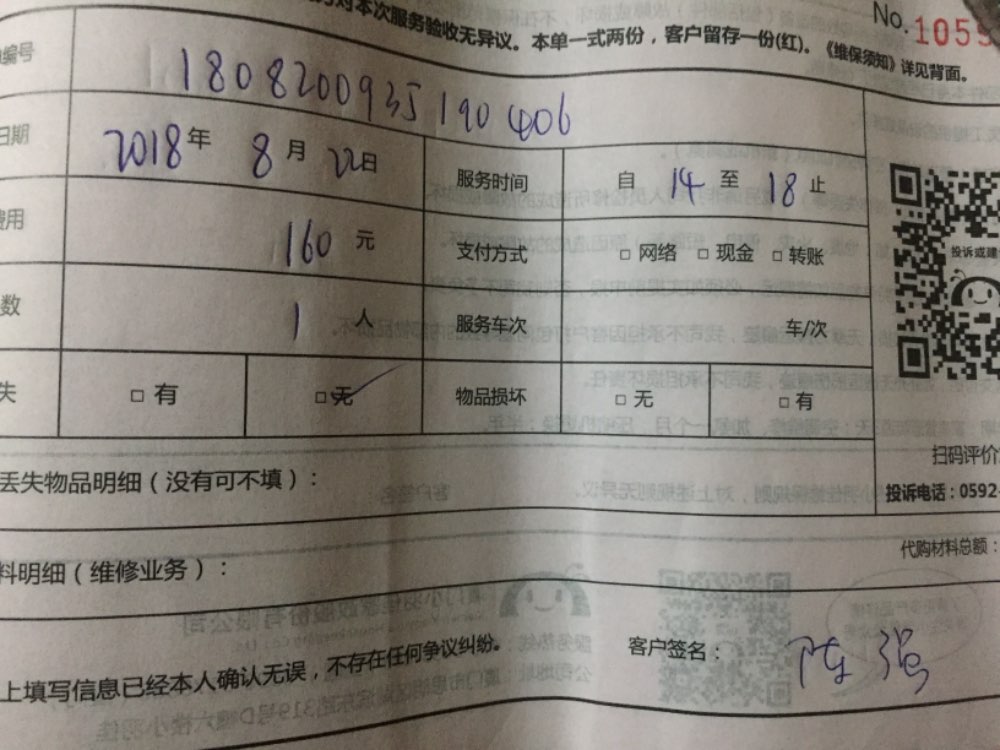 对本次服务验收无异议。本单一式两份，客户留存一份(红)。《维保须知》详见背面。
No. 1055
编号 180820093519040b
日期 2018年 8月 22日 服务时间 自 14 至 18 止
费用 160 元 支付方式 □ 网络 □ 现金 □ 转账
数 1 人 服务车次 车/次
失 □ 有 □ 无 物品损坏 □ 无 □ 有
投诉或建
扫码评价
投诉电话：0592-
丢失物品明细（没有可不填）：
代购材料总额：
料明细（维修业务）：
上填写信息已经本人确认无误，不存在任何争议纠纷。
客户签名： 陈强